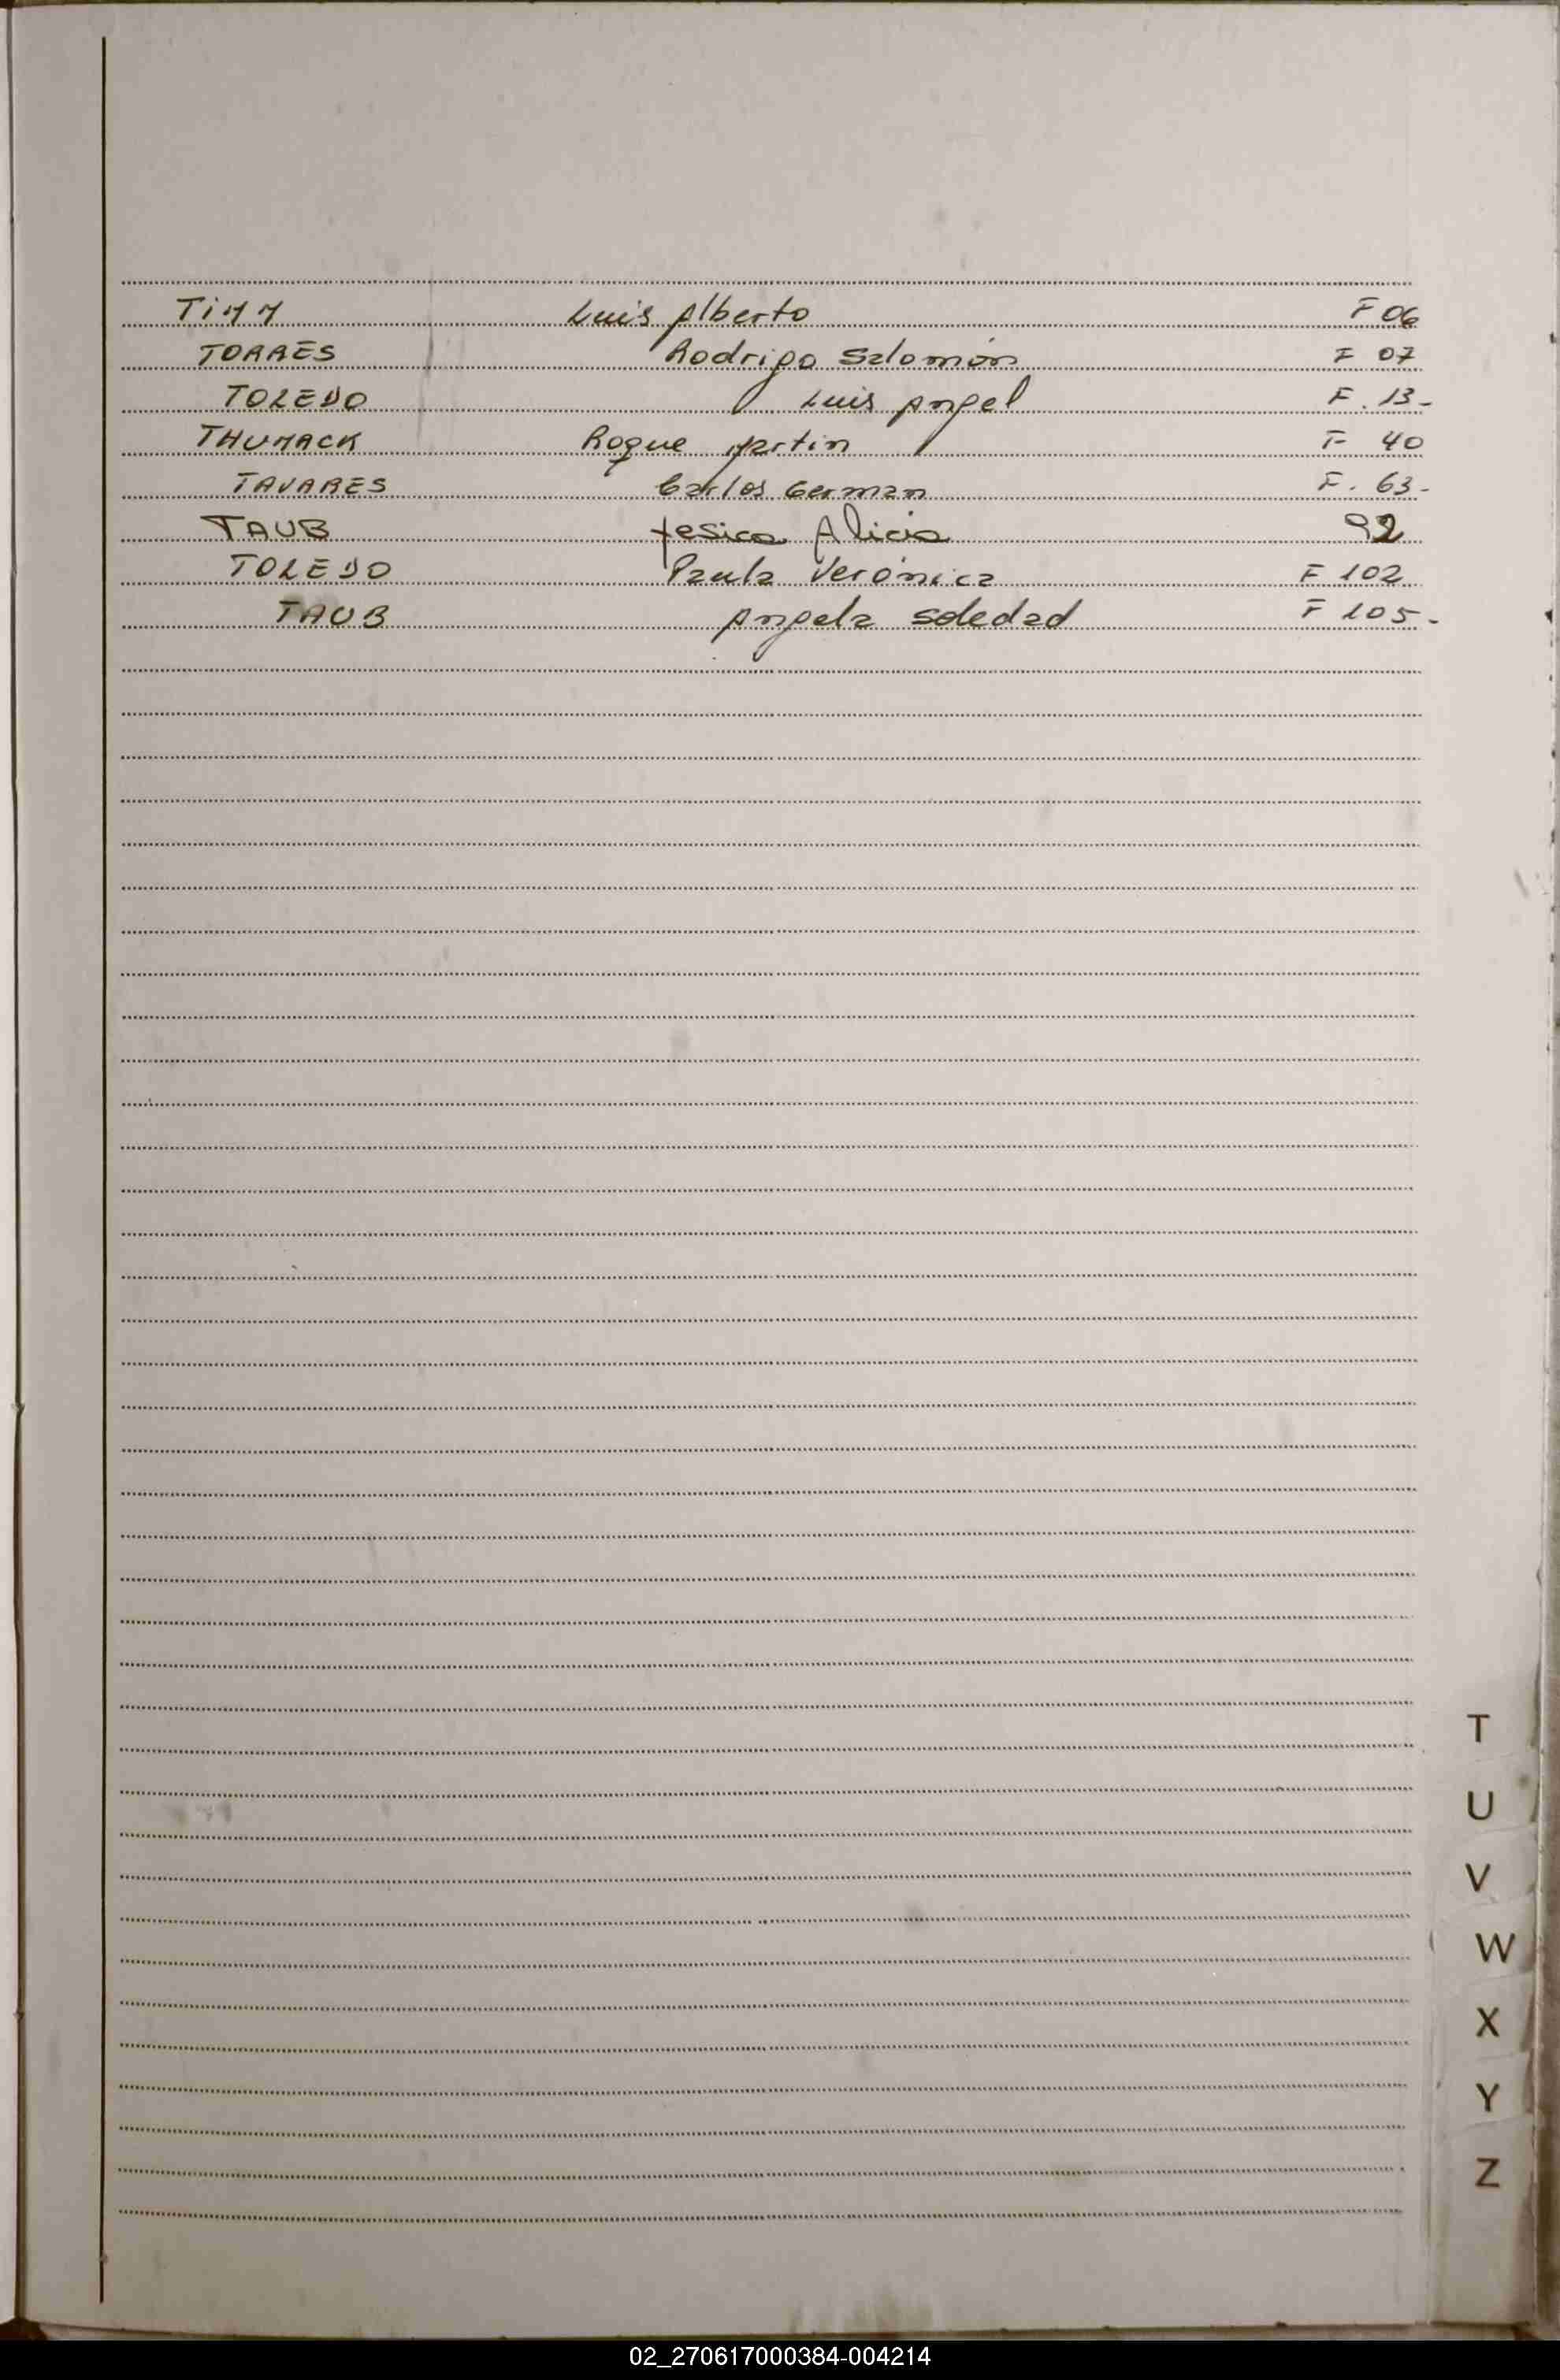 TiMM Luis Alberto F 06
TORRES Rodrigo Salomón F 07
TOLEDO Luis Angel F. 13-
THUMACK Roque Martin F 40
TAVARES Carlos German F. 63-
TAUB Jesica Alicia 92
TOLEDO Paula Verónica F 102
TAUB Angela Soledad F 105-
T
U
V
W
X
Y
Z
02_270617000384-004214